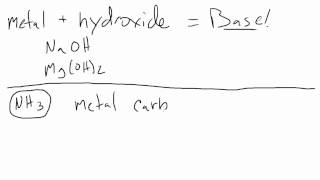 metal + hydroxide = Base!
NaOH
Mg(OH)2
NH3 metal carb